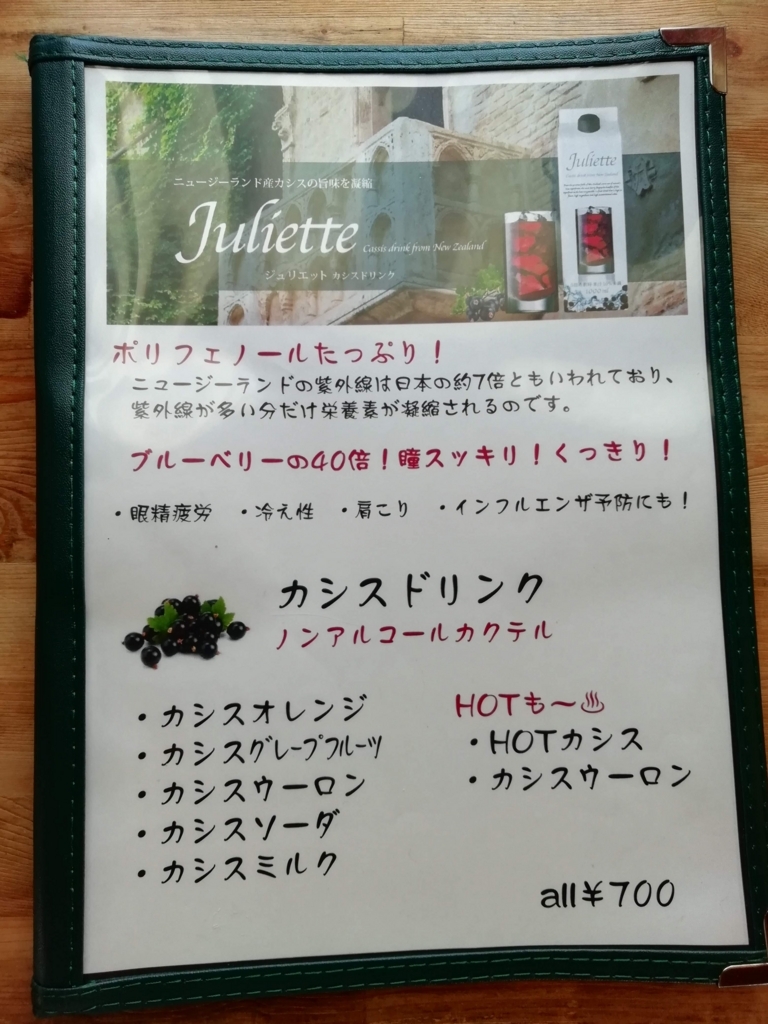 ニュージーランド産カシスの旨味を凝縮
Juliette Cassis drink from New Zealand
ジュリエット カシスドリンク
Juliette
ポリフェノールたっぷり！
ニュージーランドの紫外線は日本の約7倍ともいわれており、
紫外線が多い分だけ栄養素が凝縮されるのです。
ブルーベリーの40倍！瞳スッキリ！くっきり！
・眼精疲労 ・冷え性 ・肩こり ・インフルエンザ予防にも！
カシスドリンク
ノンアルコールカクテル
・カシスオレンジ
・カシスグレープフルーツ
・カシスウーロン
・カシスソーダ
・カシスミルク
HOTも〜♨
・HOTカシス
・カシスウーロン
all¥700